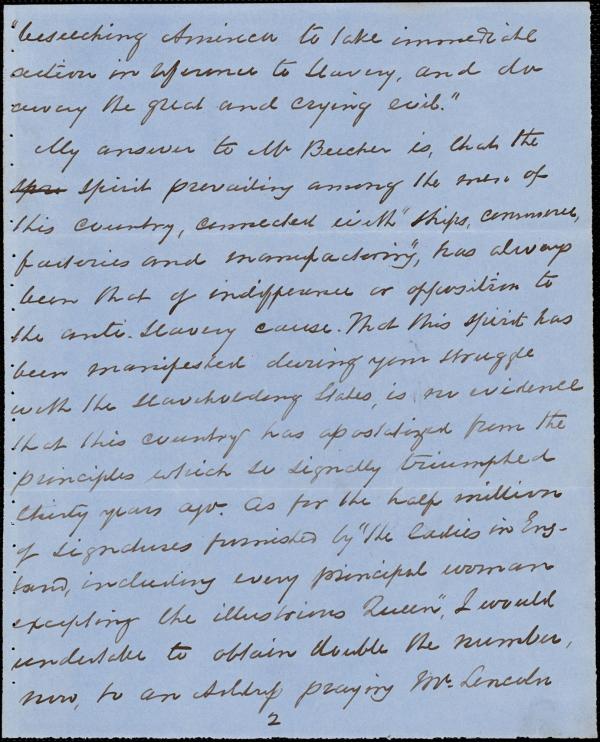 "beseeching America to take immediate
action in reference to Slavery, and do
away the great and crying evil."
My answer to Mr Beecher is, that the
spirit prevailing among the men of
this country, connected with "ships, commerce,
factories and manufactoring", has always
been that of indifference or opposition to
the anti-Slavery cause. That this spirit has
been manifested during your struggle
with the Slaveholding States, is no evidence
that this country has apostatized from the
principles which so signally triumphed
thirty years ago. As for the half million
of signatures furnished by "the Ladies in Eng-
land, including every principal woman
excepting the illustrious Queen", I would
undertake to obtain double the number,
now, to an Address praying Mr. Lincoln
2